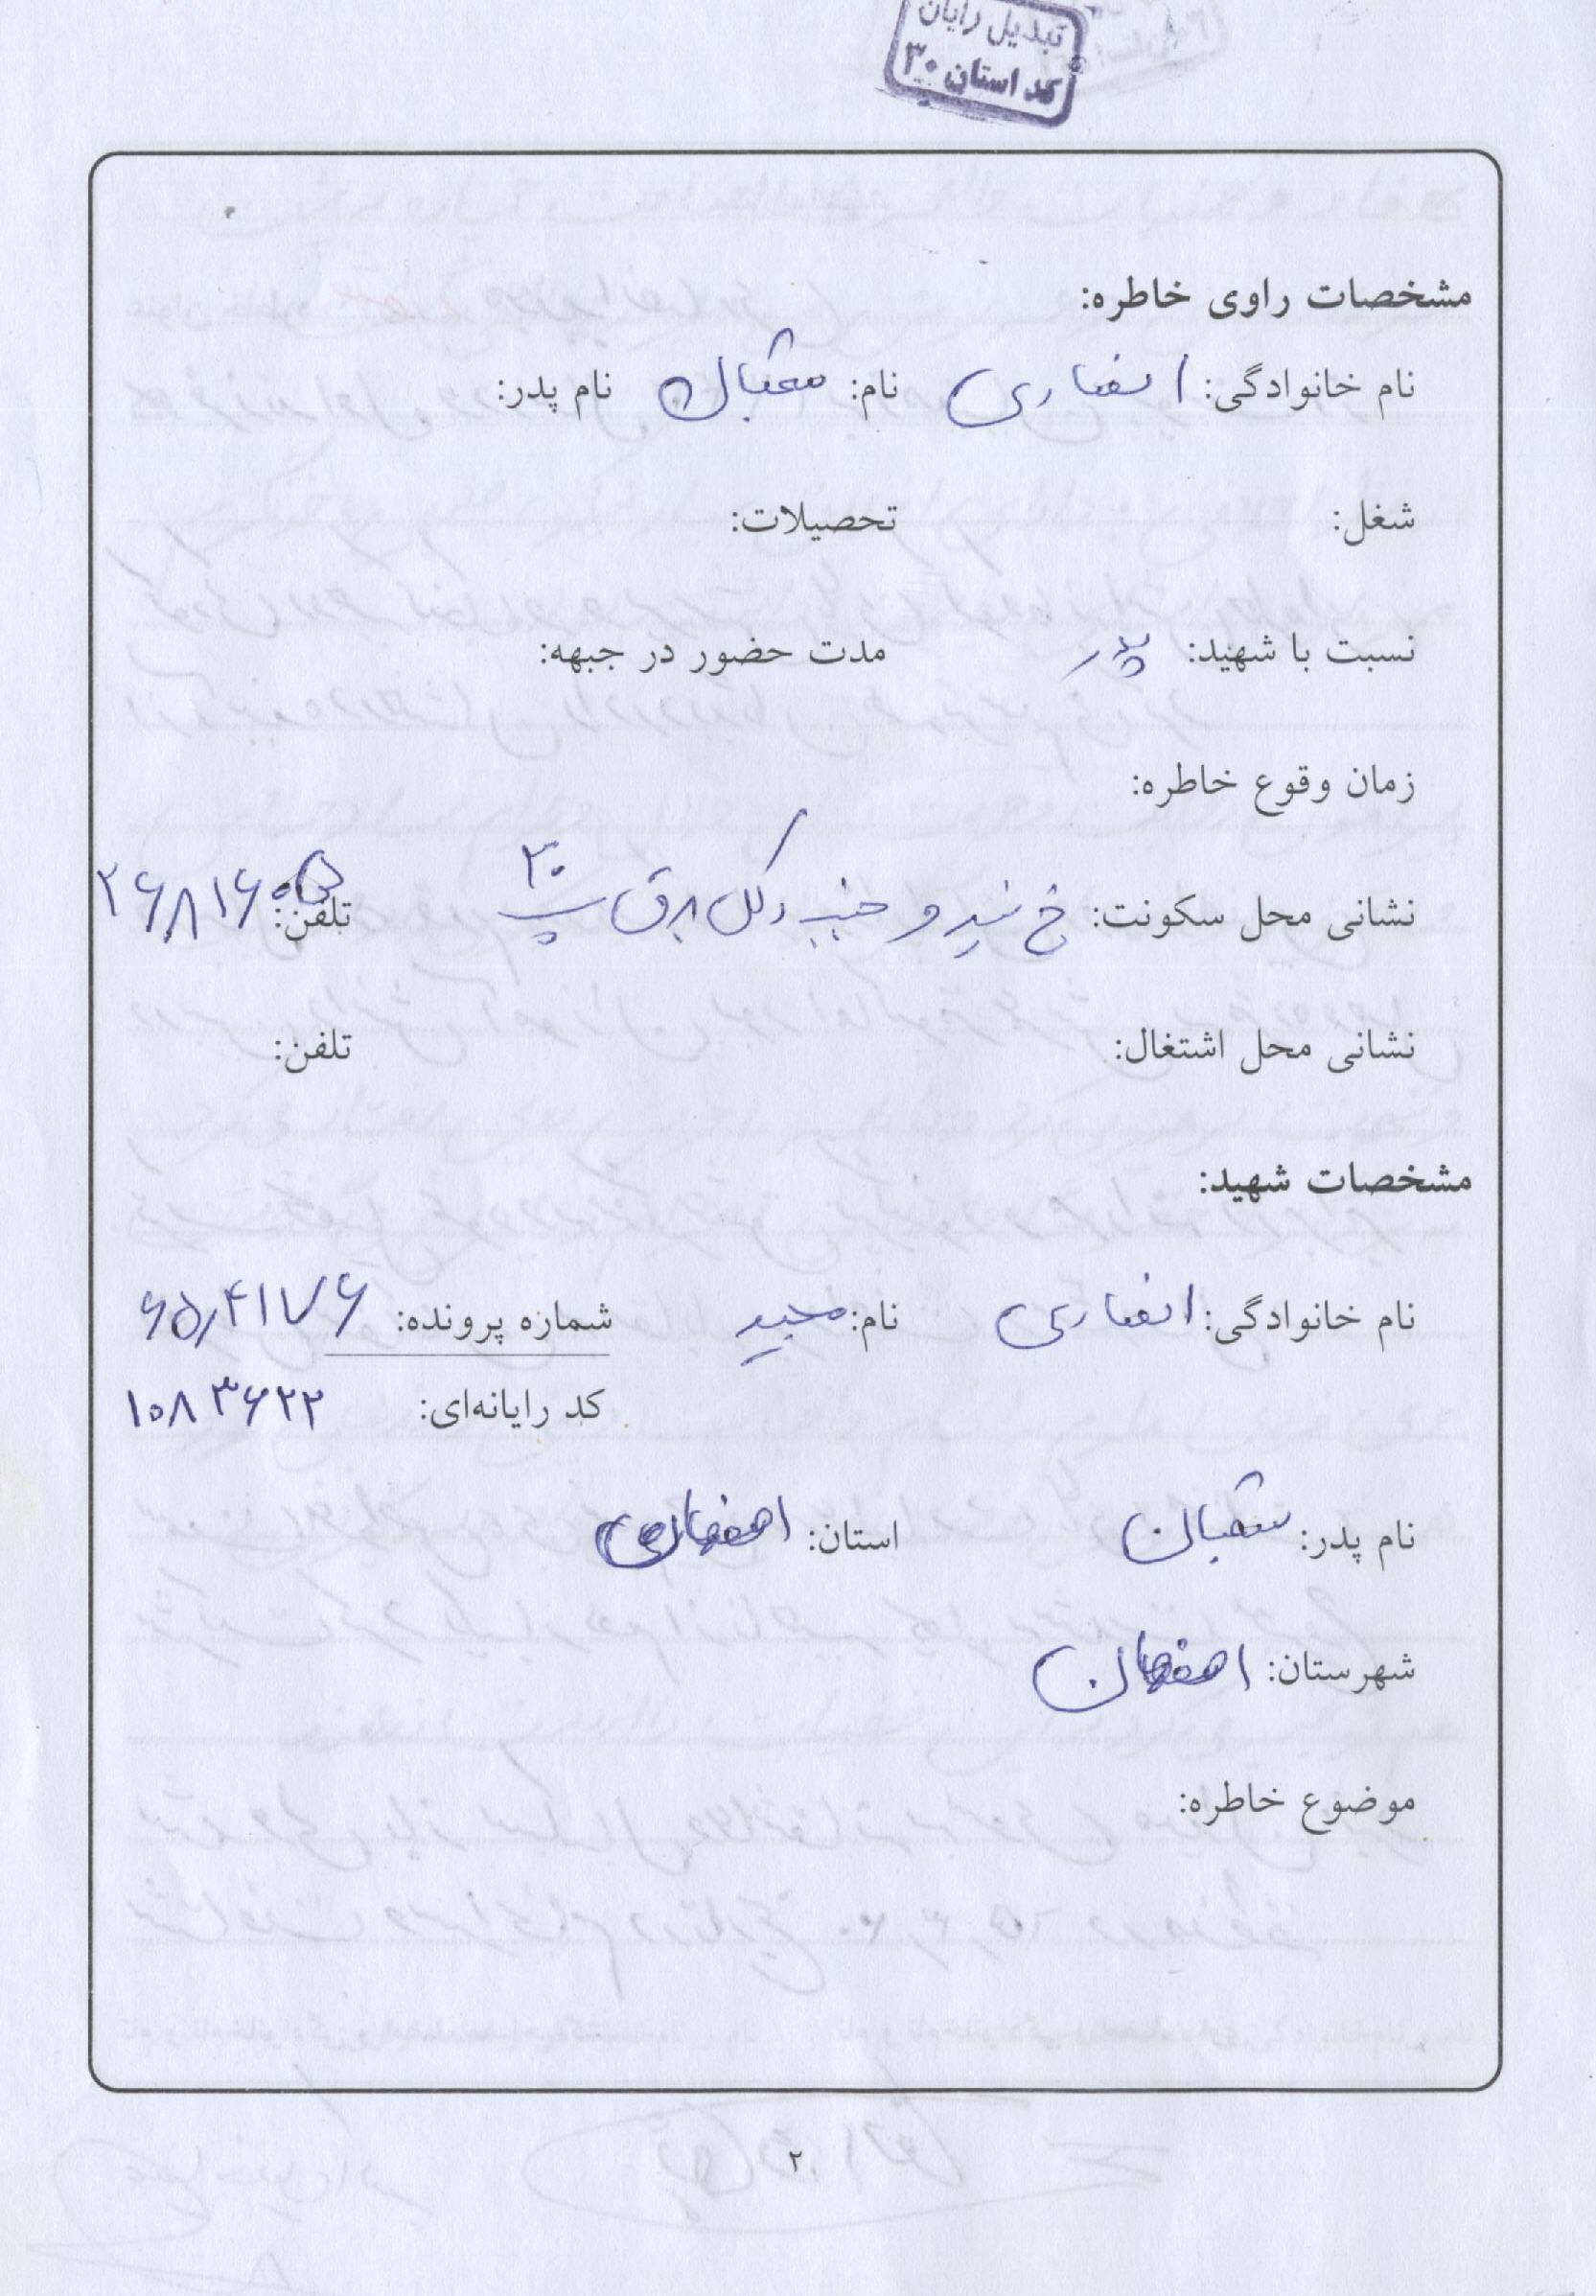 تبدیل رایان
کد استان ۳۰
مشخصات راوی خاطره:
نام خانوادگی: انصاری نام: شعبان نام پدر:
شغل: تحصیلات:
نسبت با شهید: پدر مدت حضور در جبهه:
زمان وقوع خاطره:
نشانی محل سکونت: خ نیرو جنب دکل برق پ ۲۰ تلفن: ۲۶۸۱۶۰۵
نشانی محل اشتغال: تلفن:
مشخصات شهید:
نام خانوادگی: انصاری نام: مجید شماره پرونده: ۶۵/۴۱۷۶
کد رایانه‌ای: ۱۰۸۳۶۲۲
نام پدر: شعبان استان: اصفهان
شهرستان: اصفهان
موضوع خاطره:
۲